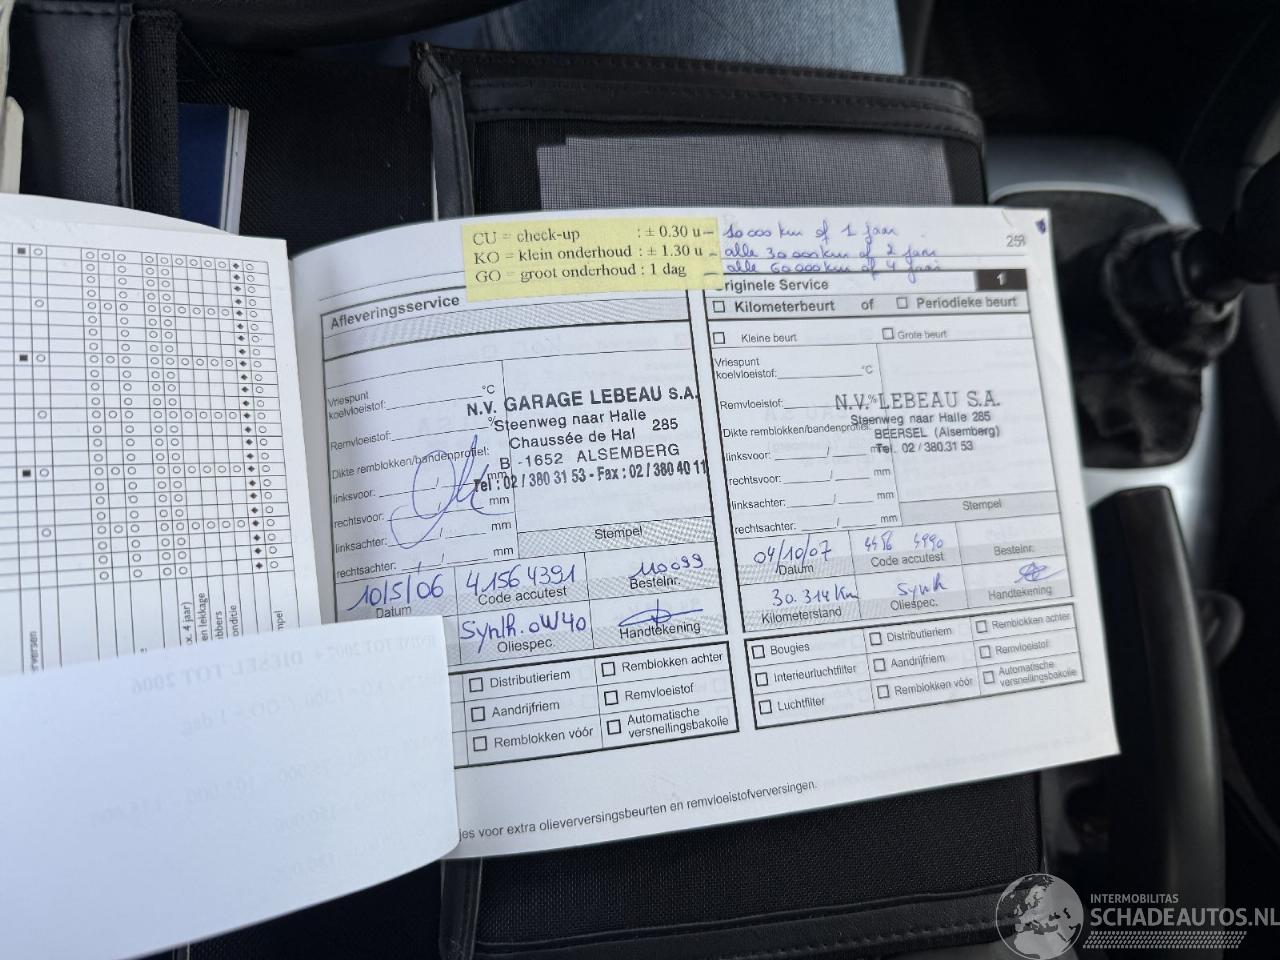 CU = check-up : ± 0.30 u – 10 000 km of 1 jaar
KO = klein onderhoud : ± 1.30 u – alle 30 000 km of 2 jaar
GO = groot onderhoud : 1 dag – alle 60 000 km of 4 jaar
Afleveringsservice
Vriespunt
koelvloeistof: °C
Remvloeistof: %
Dikte remblokken/bandenprofiel:
linksvoor: / mm
rechtsvoor: / mm
linksachter: / mm
rechtsachter: / mm
N.V. GARAGE LEBEAU S.A.
Steenweg naar Halle 285
Chaussée de Hal
B -1652 ALSEMBERG
Tel : 02 / 380 31 53 - Fax : 02 / 380 40 11
Stempel
10/5/06 41564391 110099
Datum Code accutest Bestelnr.
Synth. 0W40
Oliespec. Handtekening
Distributieriem Remblokken achter
Aandrijfriem Remvloeistof
Remblokken vóór Automatische
versnellingsbakolie
1
riginele Service
Kilometerbeurt of Periodieke beurt
Kleine beurt Grote beurt
Vriespunt
koelvloeistof: °C
Remvloeistof: %
Dikte remblokken/bandenprofiel:
linksvoor: / mm
rechtsvoor: / mm
linksachter: / mm
rechtsachter: / mm
N.V. LEBEAU S.A.
Steenweg naar Halle 285
BEERSEL (Alsemberg)
Tel. 02 / 380.31 53
Stempel
04/10/07
Datum Code accutest Bestelnr.
30.314 Km Synth
Kilometerstand Oliespec. Handtekening
Bougies Distributieriem Remblokken achter
Interieurluchtfilter Aandrijfriem Remvloeistof
Luchtfilter Remblokken vóór Automatische
versnellingsbakolie
jes voor extra olieverversingsbeurten en remvloeistofverversingen.
INTERMOBILITAS
SCHADEAUTOS.NL